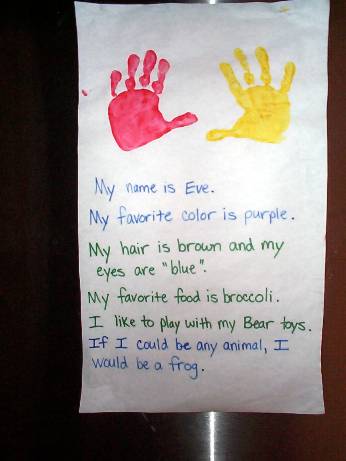 My name is Eve.
My favorite color is purple.
My hair is brown and my
eyes are "blue".
My favorite food is broccoli.
I like to play with my Bear toys.
If I could be any animal, I
would be a frog.